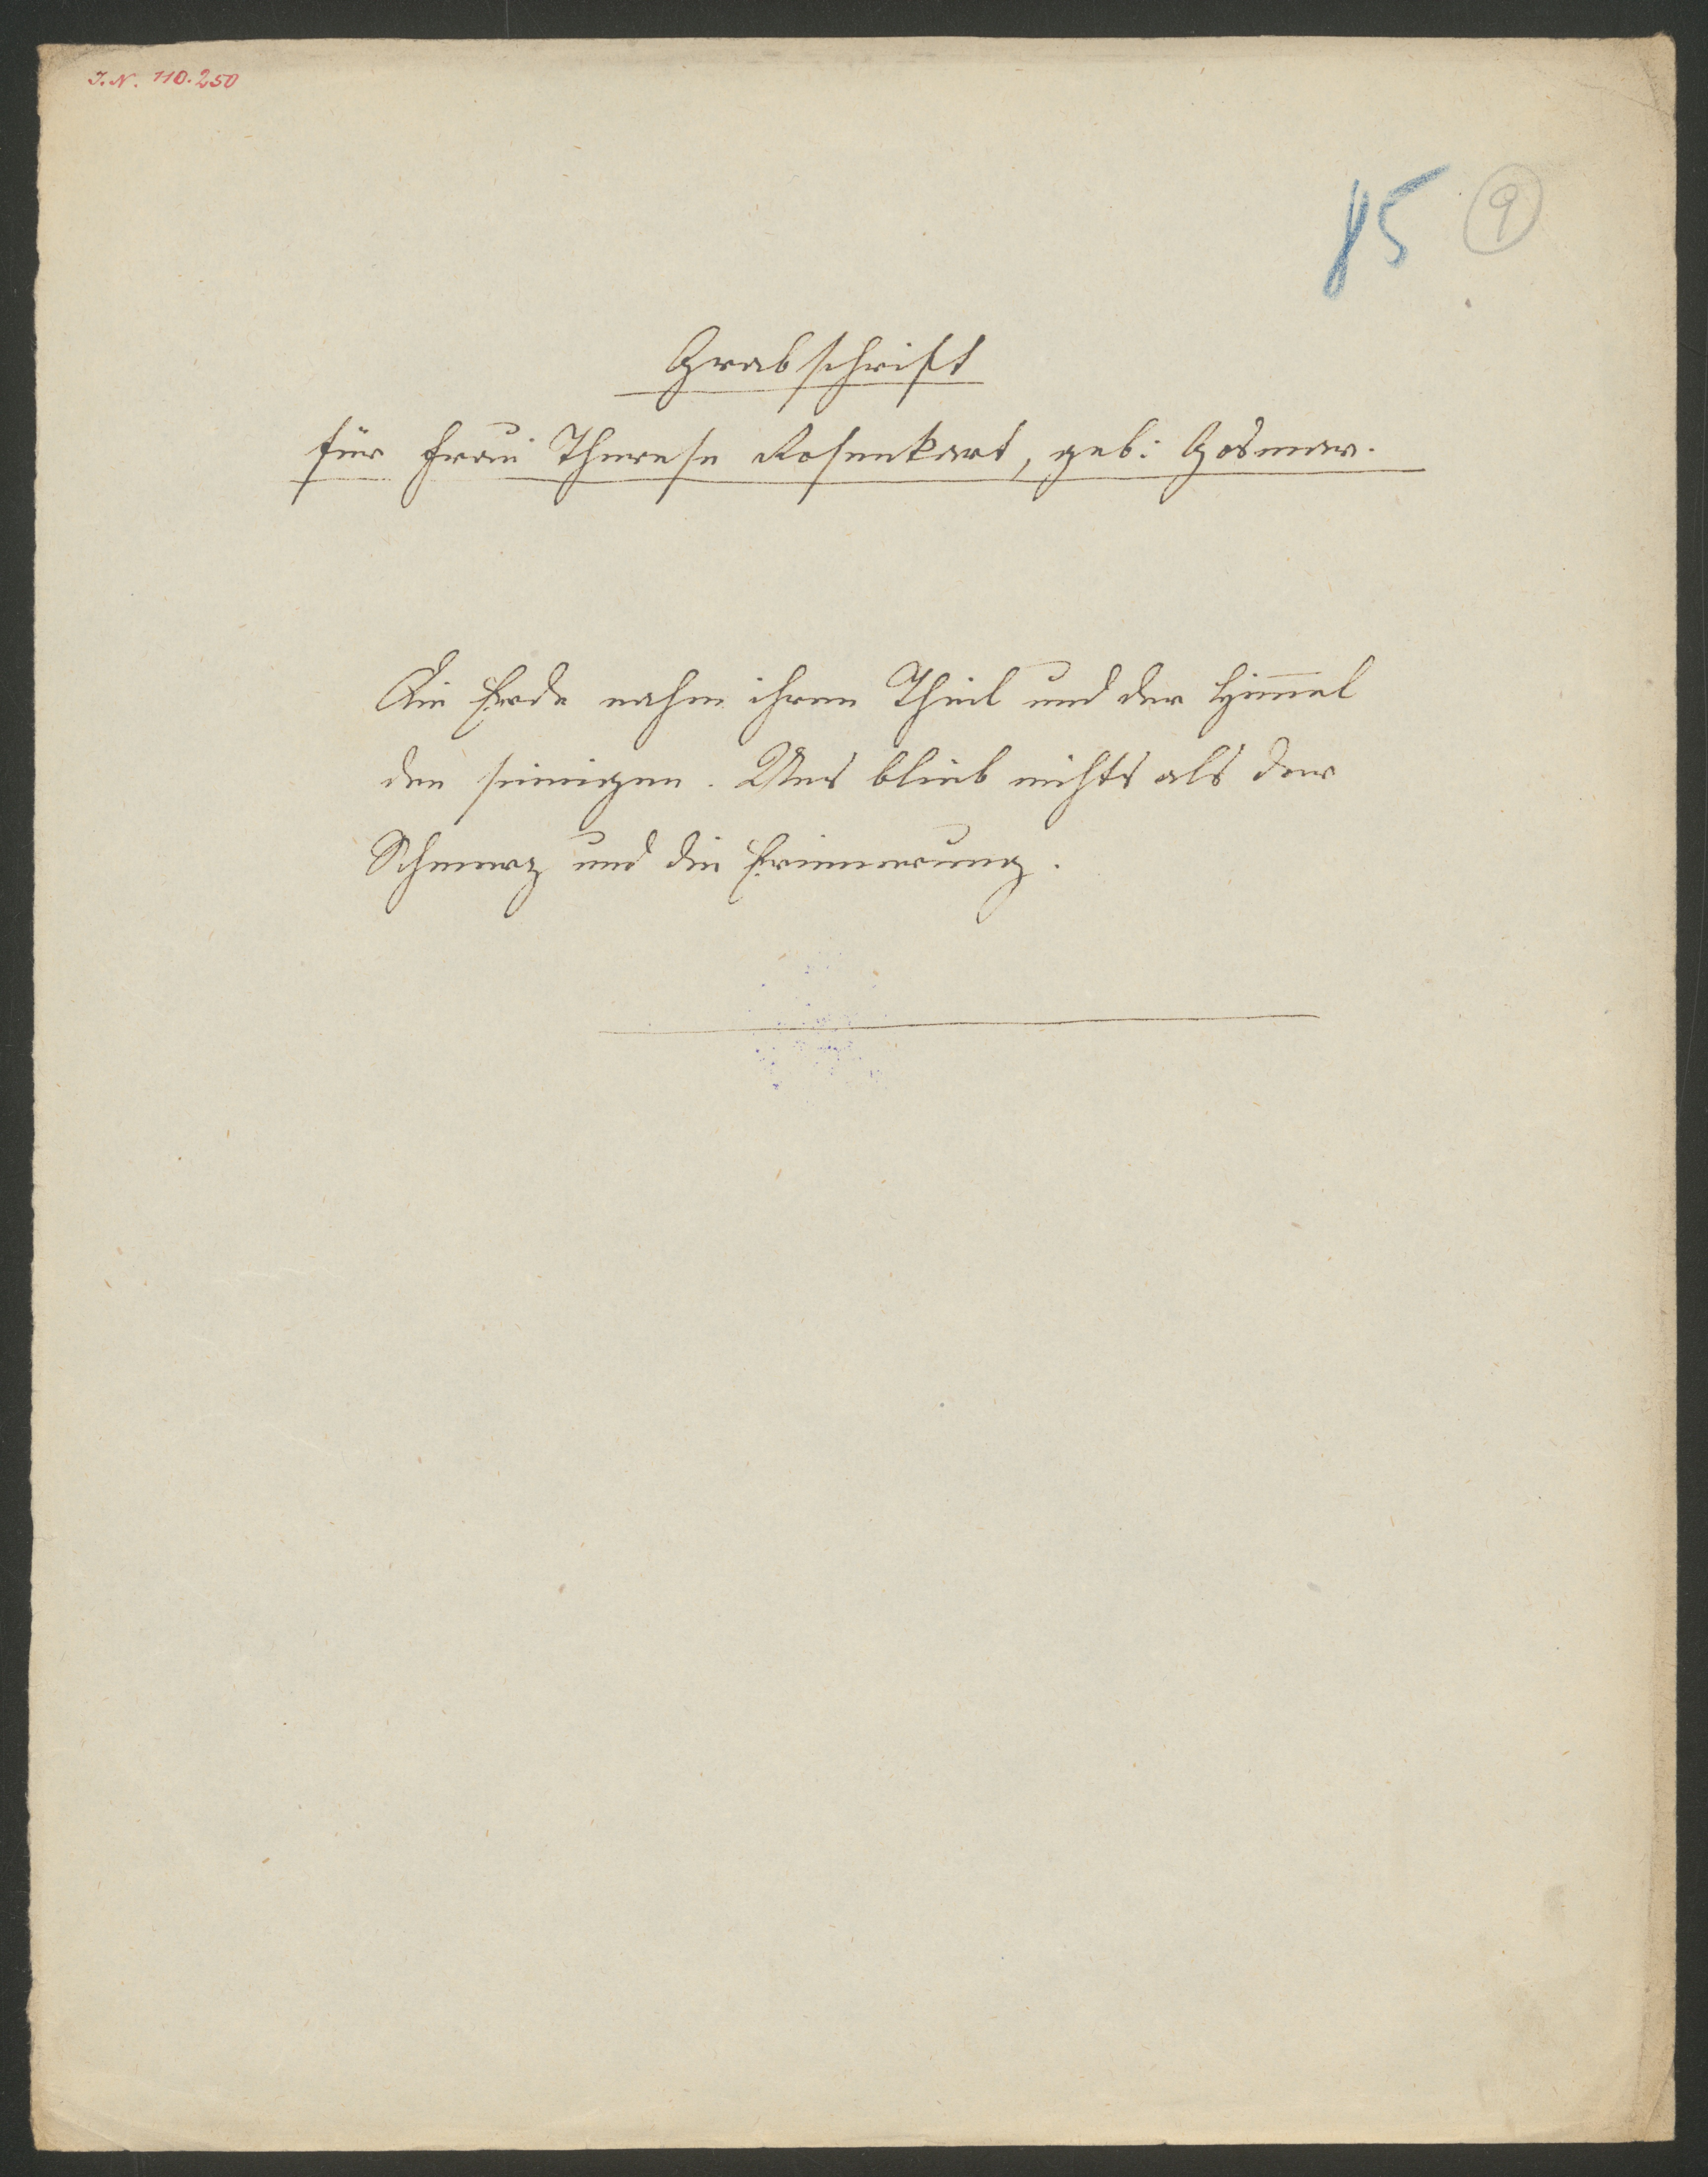 I.N. 110.250
85 9
Grabschrift
für Frau Therese Rosenkart, geb: Gosmar.
Die Erde nahm ihren Theil und der Him̅el
den seinigen. Uns blieb nichts als der
Schmerz und die Erinnerung.